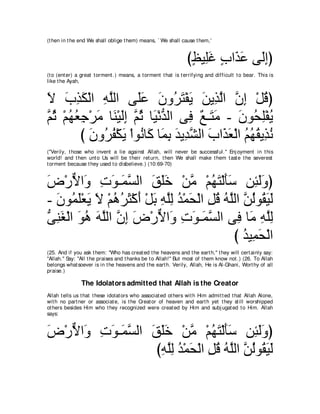 (then in the end We shall oblige them) means, ``We shall cause them,''
(إِلَى عَذَابٍ غَلِيظٍ)
(to (enter) a great torment.) means, a torment that is terrifying and difficult to bear. This is
like the Ayah,
(قُلْ إِنَّ الَّذِينَ يَفْتَرُونَ عَلَى اللَّهِ الْكَذِبَ لاَ
يُفْلِحُونَ - مَتَـعٌ فِى الدُّنْيَا ثُمَّ إِلَيْنَا مَرْجِعُهُمْ ثُمَّ
نُذِيقُهُمُ الْعَذَابَ الشَّدِيدَ بِمَا كَانُواْ يَكْفُرُونَ )
("Verily, those who invent a lie against Allah, will never be successful.'' Enjoyment in this
world! and then unto Us will be their return, then We shall make them taste the severest
torment because they used to disbelieve.) (10:69-70)
(وَلَئِن سَأَلْتَهُمْ مَّنْ خَلَقَ السَّمَـوَتِ وَالأَرْضَ
لَيَقُولُنَّ اللَّهُ قُلِ الْحَمْدُ لِلَّهِ بَلْ أَكْثَرُهُمْ لاَ يَعْلَمُونَ -
لِلَّهِ مَا فِى السَّمَـوَتِ وَالأَرْضِ إِنَّ اللَّهَ هُوَ الْغَنِىُّ
الْحَمِيدُ )
(25. And if you ask them: "Who has created the heavens and the earth,'' they will certainly say:
"Allah.'' Say: "All the praises and thanks be to Allah!'' But most of them know not.) (26. To Allah
belongs whatsoever is in the heavens and the earth. Verily, Allah, He is Al-Ghani, Worthy of all
praise.)
The Idolators admitted that Allah is the Creator
Allah tells us that these idolators who associated others with Him admitted that Allah Alone,
with no partner or associate, is the Creator of heaven and earth yet they still worshipped
others besides Him who they recognized were created by Him and subjugated to Him. Allah
says:
(وَلَئِن سَأَلْتَهُمْ مَّنْ خَلَقَ السَّمَـوَتِ وَالأَرْضَ
لَيَقُولُنَّ اللَّهُ قُلِ الْحَمْدُ لِلَّهِ)